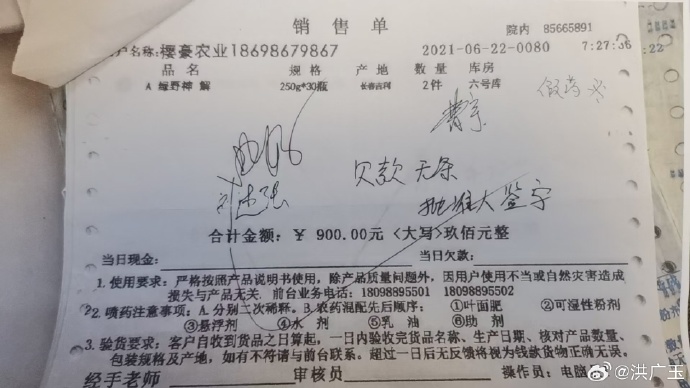 销售单
院内 85665891
客户名称: 樱豪农业18698679867 2021-06-22-0080 7:27:36
:22
品名 规格 产地 数量 库房
A 绿野神 解 250g*30瓶 长春吉利 2件 六号库
欠款 无条
签字
合计金额: ￥ 900.00元 <大写>玖佰元整
当日现金: 当日欠款:
1.使用要求: 严格按照产品说明书使用, 除产品质量问题外, 因用户使用不当或自然灾害造成
损失与产品无关. 前台业务电话: 18098895501 18098895502
2.喷药注意事项: A.分别二次稀释. B.农药混配先后顺序: ①叶面肥 ②可湿性粉剂
③悬浮剂 ④水 剂 ⑤乳 油 ⑥助 剂
3.验货要求: 客户自收到货品之日算起, 一日内验收完货品名称、生产日期、核对产品数量、
包装规格及产地, 如有不符请与前台联系. 超过一日后无反馈将视为钱款货物正确无误。
经手老师 审核员 操作员: 电脑
@洪广玉